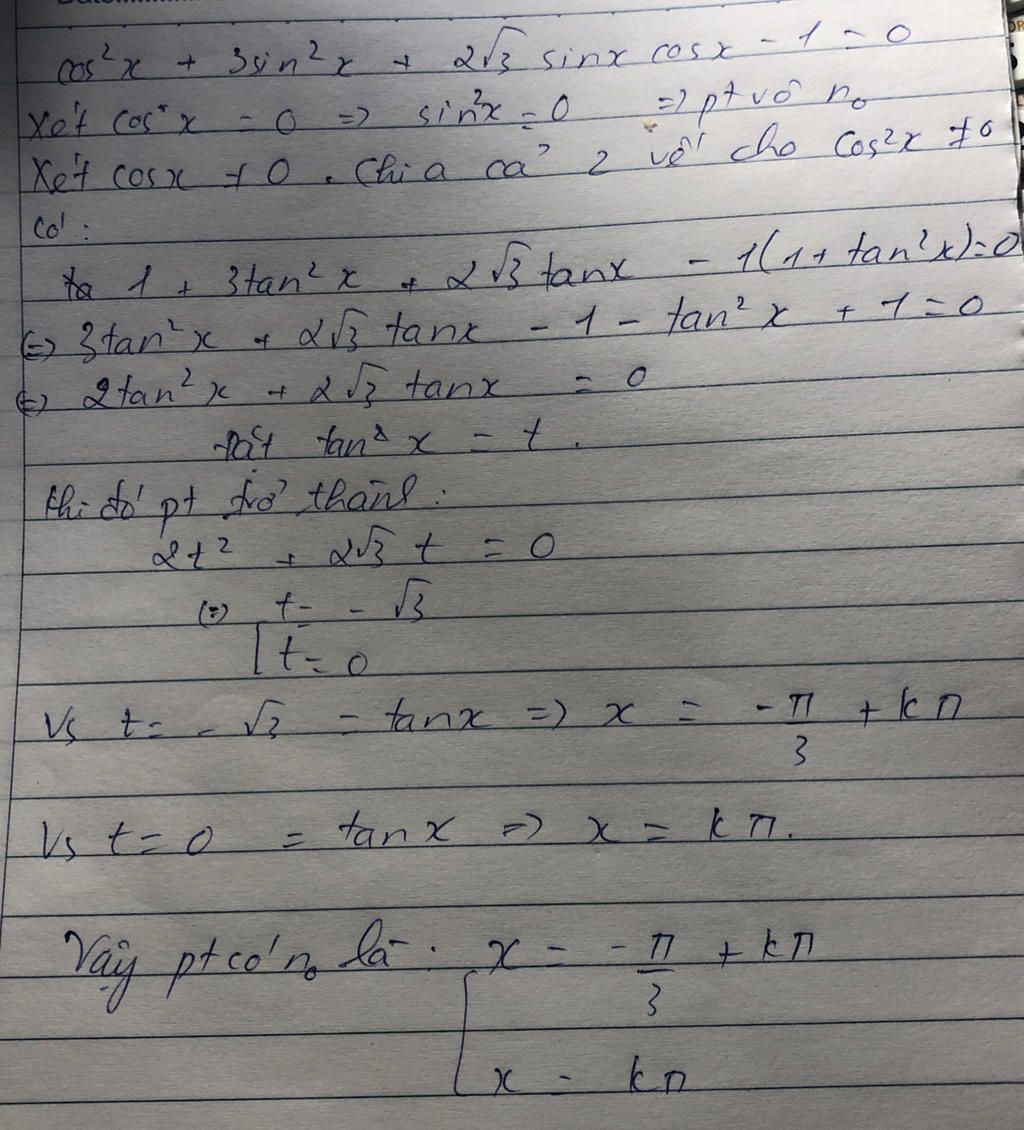 cos²x + 3sin²x + 2√3 sinx cosx - 1 = 0
Xét cos²x = 0 => sin²x = 0 => pt vô no
Xét cosx ≠ 0. Chia cả 2 vế cho cos²x ≠ 0
có:
ta 1 + 3tan²x + 2√3 tanx - 1(1 + tan²x) = 0
(=) 3tan²x + 2√3 tanx - 1 - tan²x + 1 = 0
(=) 2tan²x + 2√3 tanx = 0
đặt tan²x = t.
Khi đó pt trở thành:
2t² + 2√3 t = 0
(=) [ t = -√3
t = 0
Vs t = -√3 = tanx => x = -π/3 + kπ
Vs t = 0 = tanx => x = kπ.
Vậy pt có no là: [ x = -π/3 + kπ
x = kπ